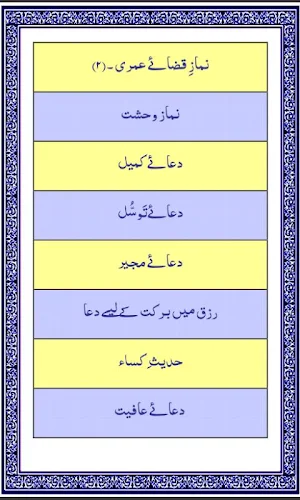 نمازِ قضائے عمری۔(۲)
نماز وحشت
دعائے کمیل
دعائے تَوسُّل
دعائے مجیر
رزق میں برکت کے لیے دعا
حدیثِ کساء
دعائے عافیت